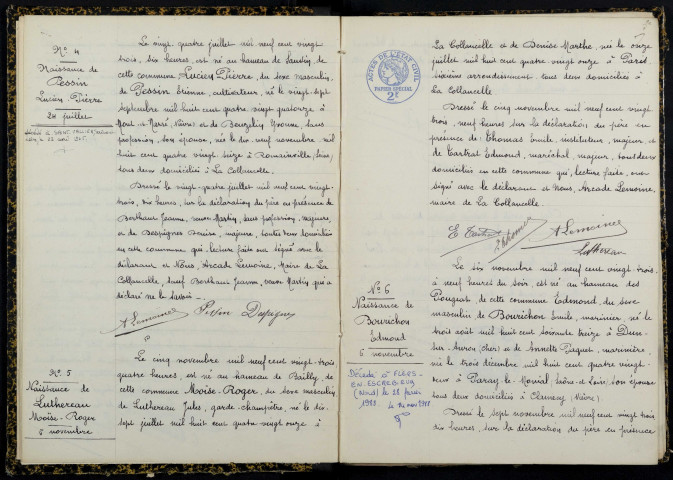 N° 4
Naissance de
Pessin
Lucien-Pierre
24 juillet
Le vingt-quatre juillet mil neuf cent vingt
trois, dix heures, est né au hameau de
cette commune Lucien Pierre, du sexe masculin,
de Pessin Étienne, cultivateur, né le vingt-sept
septembre mil huit cent quatre-vingt quatorze à
Mont-et-Marré, Nièvre et de Yvonne, sans
profession, son épouse, née le dix-neuf novembre mil
huit cent quatre-vingt seize à Romainville, Seine,
tous deux domiciliés à La Collancelle.
Dressé le vingt-quatre juillet mil neuf cent vingt-
trois, dix heures, sur la déclaration du père en présence
de Berthaux Jeanne, veuve Martin, sans profession, majeure,
et de Despignes Denise, majeure, toutes deux domiciliées
en cette commune qui, lecture faite ont signé avec le
déclarant et Nous, Arcade Lemoine, Maire de La
Collancelle, sauf Berthaux Jeanne, veuve Martin qui a
déclaré ne le savoir.
A Lemoine Pessin
N° 5
Naissance de
Luthereau
Moïse-Roger
5 novembre
Le cinq novembre mil neuf cent vingt-trois
quatre heures, est né au hameau de Bailly, de
cette commune Moïse-Roger, du sexe masculin
de Luthereau Jules, garde-champêtre, né le dix-
sept juillet mil huit cent quatre vingt onze à
ACTES DE L'ETAT CIVIL
PAPIER SPECIAL
2F
La Collancelle et de Denise Marthe, née le onze
juillet mil huit cent quatre vingt onze à Paris,
arrondissement tous deux domiciliés à
La Collancelle
Dressé le cinq novembre mil neuf cent vingt
trois, neuf heures sur la déclaration du père en
présence de Thomas Émile, instituteur, majeur et
de Tartrat Edmond, maréchal, majeur, tous deux
domiciliés en cette commune qui, lecture faite, ont
signé avec le déclarant et Nous, Arcade Lemoine,
maire de La Collancelle.
E Tartrat Thomas A Lemoine
Luthereau
N° 6
Naissance de
Bourichon
Edmond
6 novembre
Décédé à FLERS-
EN-ESCREBIEUX
(Nord) le 28
1988
Le six novembre mil neuf cent vingt-trois
à neuf heures du soir est né au hameau des
Pougeat, de cette commune Edmond, du sexe
masculin de Bourichon Émile, marinier, né le
trois août mil huit cent soixante treize à Dun-
sur-Auron, (Cher) et de Annette Paquet, marinière,
née le trois décembre mil huit cent quatre vingt-
deux à Paray-le-Monial, Saône-et-Loire, son épouse
tous deux domiciliés à Clamecy (Nièvre)
Dressé le sept novembre mil neuf cent vingt trois
dix heures, sur la déclaration du père en présence